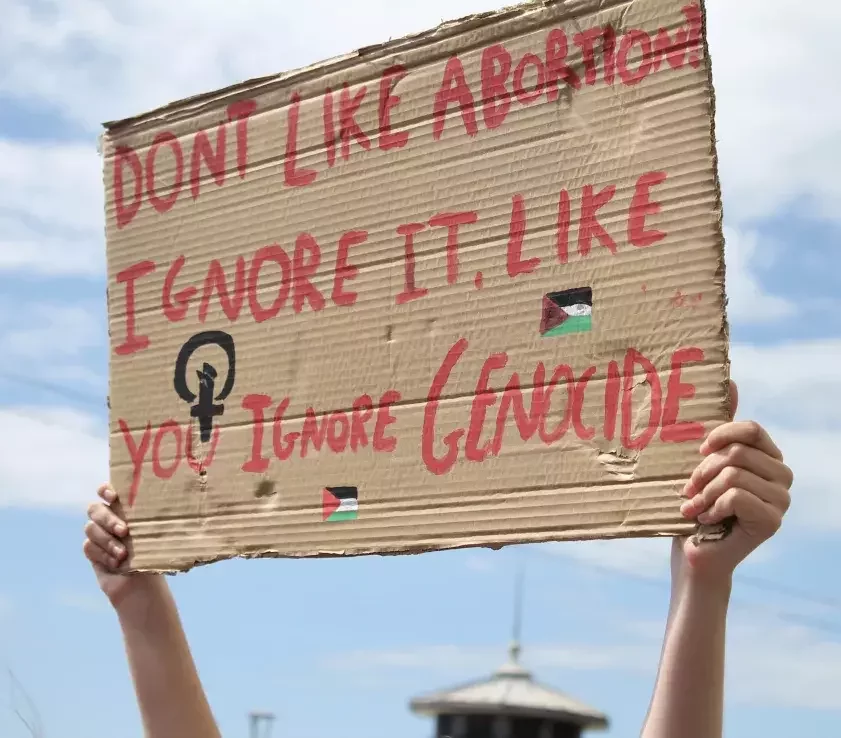 DONT LIKE ABORTION?
IGNORE IT. LIKE
YOU IGNORE GENOCIDE